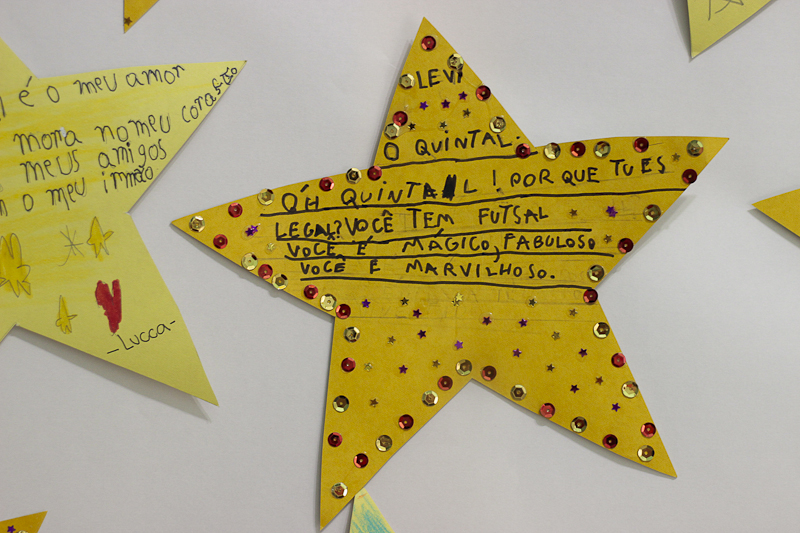 é o meu amor
mora no meu coração
meus amigos
o meu irmão
-Lucca-
LEVI
O QUINTAL.
ÓH QUINTAL! PORQUE TU ES
LEGAL? VOCÊ TEM FUTSAL
VOCÊ É MÁGICO, FABULOSO
VOCE E MARVILHOSO.